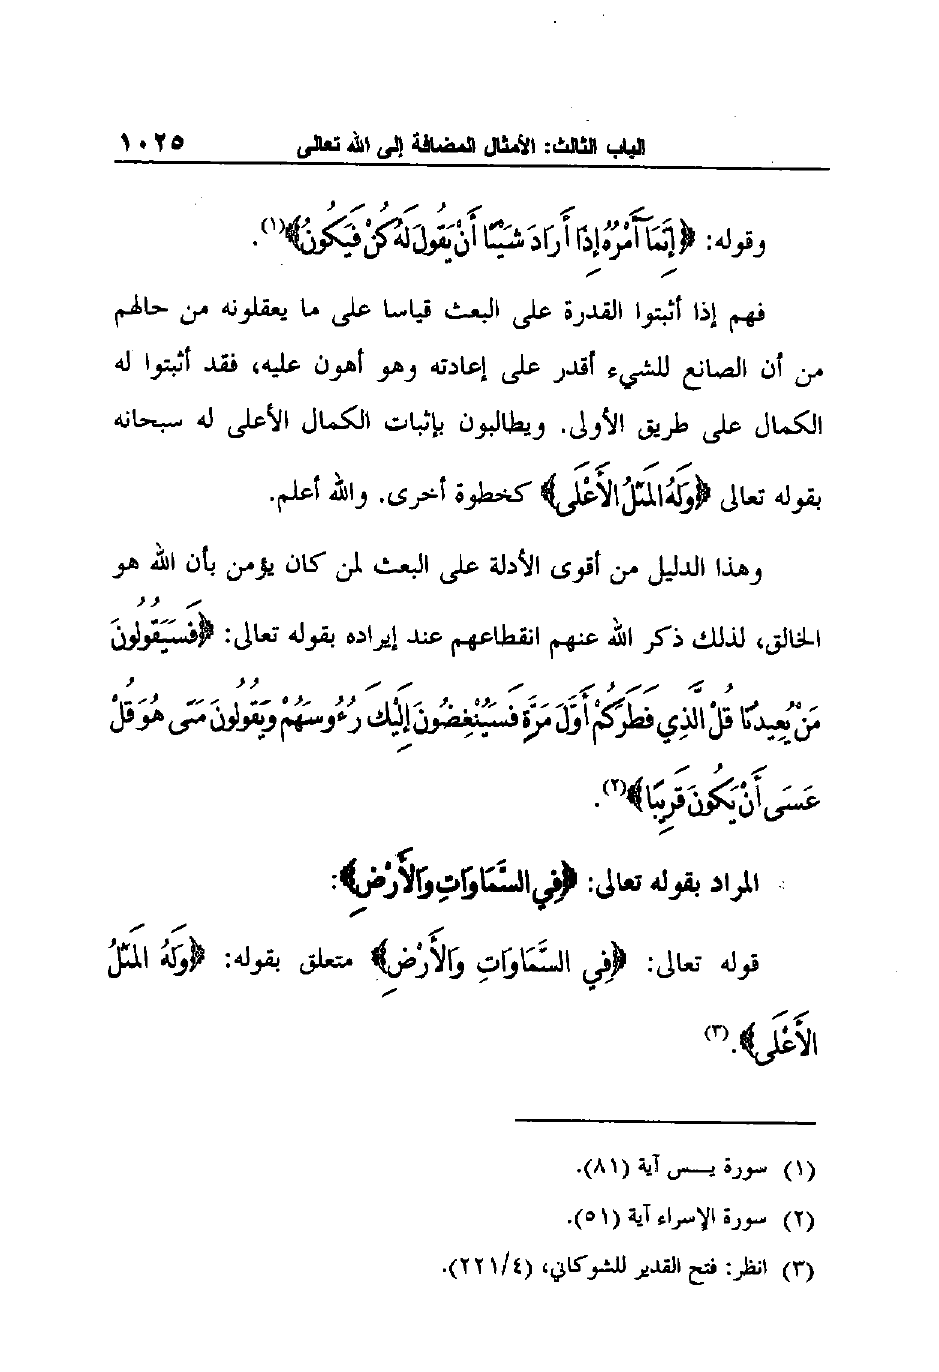 الباب الثالث: الأمثال المضافة إلى الله تعالى ١٠٢٥
وقوله: ﴿إِنَّمَا أَمْرُهُ إِذَا أَرَادَ شَيْئًا أَنْ يَقُولَ لَهُ كُنْ فَيَكُونُ﴾(١).
فهم إذا أثبتوا القدرة على البعث قياسا على ما يعقلونه من حالهم
من أن الصانع للشيء أقدر على إعادته وهو أهون عليه، فقد أثبتوا له
الكمال على طريق الأولى. ويطالبون بإثبات الكمال الأعلى له سبحانه
بقوله تعالى ﴿وَلَهُ المَثَلُ الأَعْلَى﴾ كخطوة أخرى. والله أعلم.
وهذا الدليل من أقوى الأدلة على البعث لمن كان يؤمن بأن الله هو
الخالق، لذلك ذكر الله عنهم انقطاعهم عند إيراده بقوله تعالى: ﴿فَسَيَقُولُونَ
مَنْ يُعِيدُنَا قُلْ الَّذِي فَطَرَكُمْ أَوَّلَ مَرَّةٍ فَسَيُنْغِضُونَ إِلَيْكَ رُءُوسَهُمْ وَيَقُولُونَ مَتَى هُوَ قُلْ
عَسَى أَنْ يَكُونَ قَرِيبًا﴾(٢).
المراد بقوله تعالى: ﴿فِي السَّمَاوَاتِ وَالأَرْضِ﴾:
قوله تعالى: ﴿فِي السَّمَاوَاتِ وَالأَرْضِ﴾ متعلق بقوله: ﴿وَلَهُ المَثَلُ
الأَعْلَى﴾.(٣)
(١) سورة يــس آية (٨١).
(٢) سورة الإسراء آية (٥١).
(٣) انظر: فتح القدير للشوكاني، (٢٢١/٤).